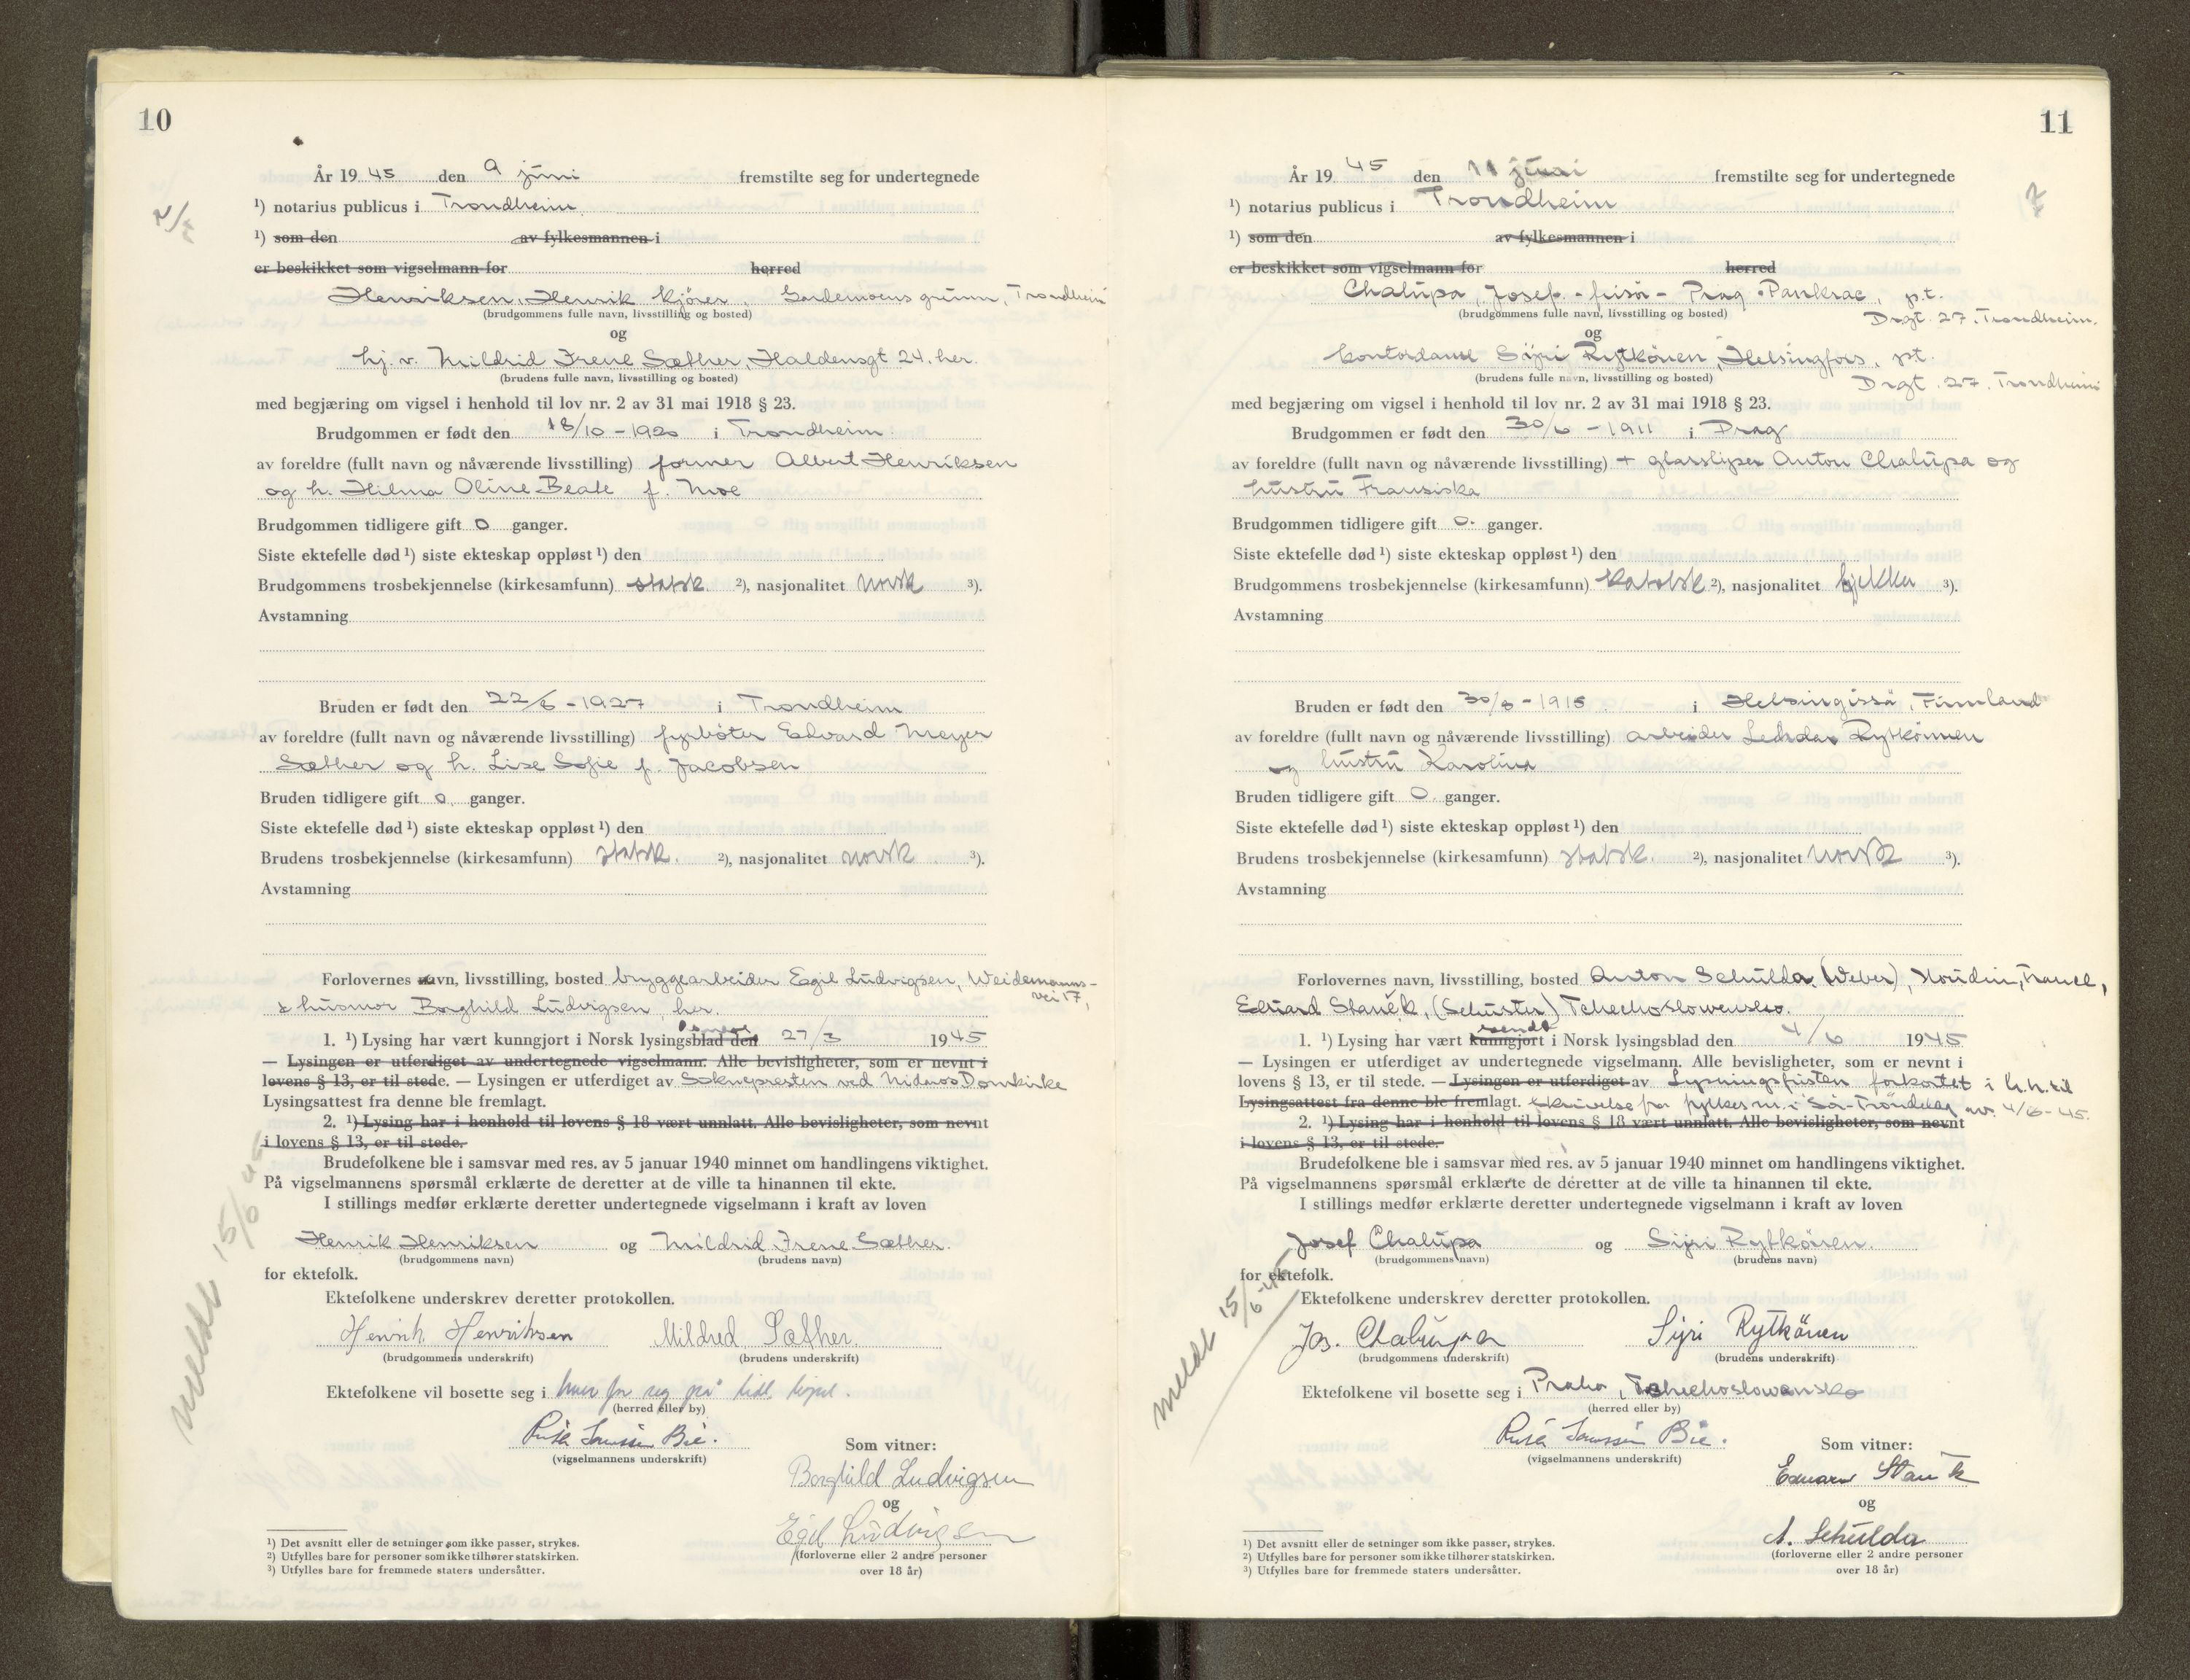 10
År 19 45 den 9 juni fremstilte seg for undertegnede
¹) notarius publicus i Trondheim
¹) som den av fylkesmannen i
er beskikket som vigselmann for herred
Henriksen, Henrik kjörer, grunn, Trondheim
(brudgommens fulle navn, livsstilling og bosted)
og
hj. v. Mildrid Irene Sæther, Haldensgt 24. her.
(brudens fulle navn, livsstilling og bosted)
med begjæring om vigsel i henhold til lov nr. 2 av 31 mai 1918 § 23.
Brudgommen er født den 18/10 - 1920 i Trondheim
av foreldre (fullt navn og nåværende livsstilling) former Albert Henriksen
og h. Hilma Oline Beate f. Moe
Brudgommen tidligere gift 0 ganger.
Siste ektefelle død ¹) siste ekteskap oppløst ¹) den
Brudgommens trosbekjennelse (kirkesamfunn) statsk. ²), nasjonalitet norsk ³).
Avstamning
Bruden er født den 22/6 - 1927 i Trondheim
av foreldre (fullt navn og nåværende livsstilling) fyrböter Edvard Meyer
Sæther og h. Lise Sofie f. Jacobsen
Bruden tidligere gift 0 ganger.
Siste ektefelle død ¹) siste ekteskap oppløst ¹) den
Brudens trosbekjennelse (kirkesamfunn) statsk. ²), nasjonalitet norsk ³).
Avstamning
Forlovernes navn, livsstilling, bosted bryggearbeider Egil Ludvigsen, Weidemanns-
vei 17,
& husmor Borghild Ludvigsen, her.
1. ¹) Lysing har vært kunngjort i Norsk lysingsblad den 27/3 1945
— Lysingen er utferdiget av undertegnede vigselmann. Alle bevisligheter, som er nevnt i
lovens § 13, er til stede. — Lysingen er utferdiget av Soknepresten ved Nidaros Domkirke
Lysingsattest fra denne ble fremlagt.
2. ¹) Lysing har i henhold til lovens § 18 vært unnlatt. Alle bevisligheter, som nevnt
i lovens § 13, er til stede.
Brudefolkene ble i samsvar med res. av 5 januar 1940 minnet om handlingens viktighet.
På vigselmannens spørsmål erklærte de deretter at de ville ta hinannen til ekte.
I stillings medfør erklærte deretter undertegnede vigselmann i kraft av loven
Henrik Henriksen og Mildrid Irene Sæther.
(brudgommens navn) (brudens navn)
for ektefolk.
Ektefolkene underskrev deretter protokollen.
Henrik Henriksen Mildred Sæther.
(brudgommens underskrift) (brudens underskrift)
Ektefolkene vil bosette seg i hver for seg på tidl. bopel.
(herred eller by)
Bie.
(vigselmannens underskrift)
Som vitner:
Borghild Ludvigsen
og
Egil Ludvigsen
(forloverne eller 2 andre personer
over 18 år)
meldt 15/6 45
¹) Det avsnitt eller de setninger som ikke passer, strykes.
²) Utfylles bare for personer som ikke tilhører statskirken.
³) Utfylles bare for fremmede staters undersåtter.
11
År 19 45 den 11 juni fremstilte seg for undertegnede
¹) notarius publicus i Trondheim
¹) som den av fylkesmannen i
er beskikket som vigselmann for herred
Chalupa, Josef - frisör - Prag - Pankrac, p.t.
Drgt. 27. Trondheim.
(brudgommens fulle navn, livsstilling og bosted)
og
kontordame Sijri Rytkönen, Helsingfors, pt.
Drgt. 27. Trondheim
(brudens fulle navn, livsstilling og bosted)
med begjæring om vigsel i henhold til lov nr. 2 av 31 mai 1918 § 23.
Brudgommen er født den 30/6 - 1911 i Prag
av foreldre (fullt navn og nåværende livsstilling) + glassliper Anton Chalupa og
hustru Fransiska
Brudgommen tidligere gift 0. ganger.
Siste ektefelle død ¹) siste ekteskap oppløst ¹) den
Brudgommens trosbekjennelse (kirkesamfunn) katolsk ²), nasjonalitet tjekker ³).
Avstamning
Bruden er født den 30/8 - 1915 i Helsingissä, Finnland
av foreldre (fullt navn og nåværende livsstilling) arbeider Rytkönen
og hustru Karolina
Bruden tidligere gift 0. ganger.
Siste ektefelle død ¹) siste ekteskap oppløst ¹) den
Brudens trosbekjennelse (kirkesamfunn) statsk. ²), nasjonalitet norsk ³).
Avstamning
Forlovernes navn, livsstilling, bosted Anton Schulda (Weber),
Eduard Staněk, (Schuster)
1. ¹) Lysing har vært kunngjort sendt i Norsk lysingsblad den 4/6 1945
— Lysingen er utferdiget av undertegnede vigselmann. Alle bevisligheter, som er nevnt i
lovens § 13, er til stede. — Lysingen er utferdiget av Lysningsfristen forkortet i h.h. til
Lysingsattest fra denne ble fremlagt. skrivelse fra fylkesm. i Sör-Tröndelag av. 4/6-45.
2. ¹) Lysing har i henhold til lovens § 18 vært unnlatt. Alle bevisligheter, som nevnt
i lovens § 13, er til stede.
Brudefolkene ble i samsvar med res. av 5 januar 1940 minnet om handlingens viktighet.
På vigselmannens spørsmål erklærte de deretter at de ville ta hinannen til ekte.
I stillings medfør erklærte deretter undertegnede vigselmann i kraft av loven
Josef Chalupa og Sijri Rytkönen.
(brudgommens navn) (brudens navn)
for ektefolk.
Ektefolkene underskrev deretter protokollen.
Jos. Chalupa Sijri Rytkönen
(brudgommens underskrift) (brudens underskrift)
Ektefolkene vil bosette seg i Praha, Tchechoslowensko
(herred eller by)
Bie.
(vigselmannens underskrift)
Som vitner:
Eduard Staněk
og
A. Schulda
(forloverne eller 2 andre personer
over 18 år)
meldt 15/6-45
¹) Det avsnitt eller de setninger som ikke passer, strykes.
²) Utfylles bare for personer som ikke tilhører statskirken.
³) Utfylles bare for fremmede staters undersåtter.